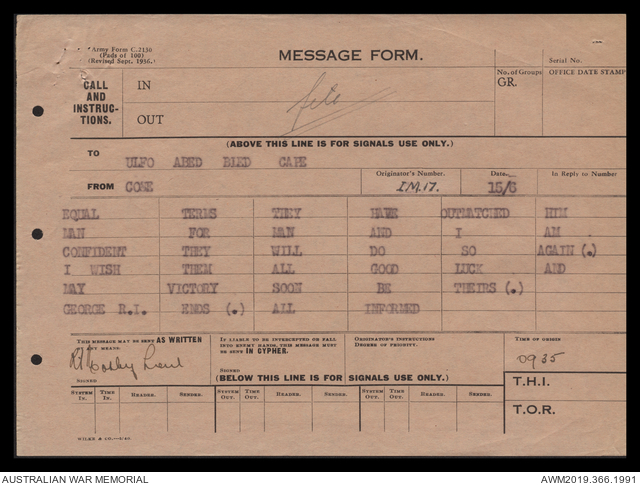 Army Form C.2136
(Pads of 100)
(Revised Sept. 1936.)
MESSAGE FORM.
Serial No.
CALL AND INSTRUC- TIONS.
IN
OUT
file
No. of Groups GR.
OFFICE DATE STAMP
(ABOVE THIS LINE IS FOR SIGNALS USE ONLY.)
TO ULFO ABED BLED CAPE
FROM GONE
Originator's Number. I.M.17.
Date. 15/6
In Reply to Number
EQUAL TERMS THEY HAVE OUTMATCHED HIM
MAN FOR MAN AND I AM
CONFIDENT THEY WILL DO SO AGAIN (.)
I WISH THEM ALL GOOD LUCK AND
MAY VICTORY SOON BE THEIRS (.)
GEORGE R.I. ENDS (.) ALL INFORMED
THIS MESSAGE MAY BE SENT AS WRITTEN BY ANY MEANS.
Lieut
SIGNED
IF LIABLE TO BE INTERCEPTED OR FALL INTO ENEMY HANDS, THIS MESSAGE MUST BE SENT IN CYPHER.
SIGNED
ORIGINATOR'S INSTRUCTIONS DEGREE OF PRIORITY.
TIME OF ORIGIN
0935
(BELOW THIS LINE IS FOR SIGNALS USE ONLY.)
SYSTEM IN. TIME IN. READER. SENDER. SYSTEM OUT. TIME OUT. READER. SENDER. SYSTEM OUT. TIME OUT. READER. SENDER.
T.H.I.
T.O.R.
AUSTRALIAN WAR MEMORIAL
AWM2019.366.1991